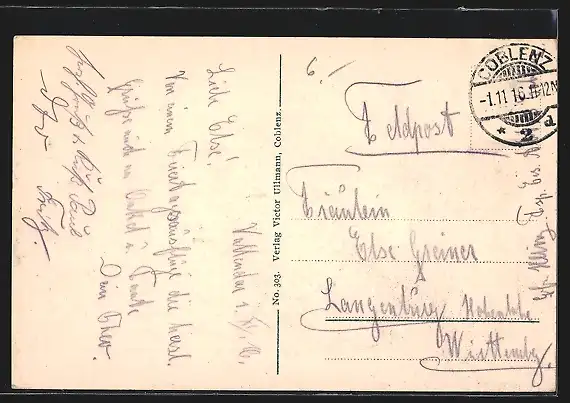 Vallendar 1. XI. 16.
Liebe Else!
Von einem Feiertagsausflug die herzl.
Grüße auch an Onkel u. Tante
Dein Theo.
Fritz.
No. 303. Verlag Victor Ullmann, Coblenz.
COBLENZ
-1.11.16.11-12N
* 2 d
6. 1
Feldpost
Fräulein
Else Greiner
Langenburg Hohenlohe
Württembg.